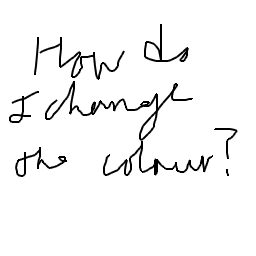 How do
I change
the colour?